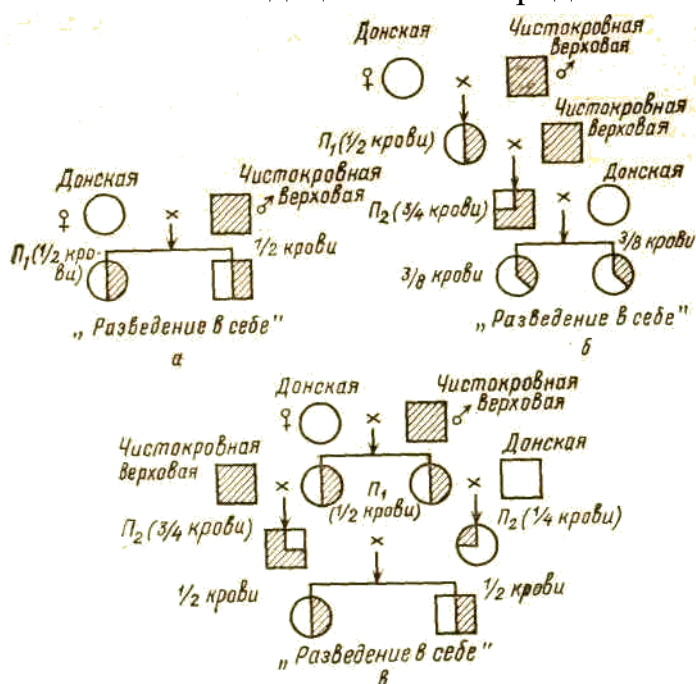 Донская
Чистокровная
верховая
♀ × ♂
Чистокровная
верховая
П₁ (1/2 крови) ×
Донская
П₂ (3/4 крови) ×
3/8 крови
3/8 крови
„Разведение в себе"
б
Донская
Чистокровная
верховая
♀ × ♂
П₁ (1/2 кро-
ви)
1/2 крови
„Разведение в себе"
а
Донская
Чистокровная
верховая
♀ × ♂
Чистокровная
верховая
Донская
× П₁ ×
(1/2 крови)
П₂ (3/4 крови)
П₂ (1/4 крови)
×
1/2 крови
1/2 крови
„Разведение в себе"
в